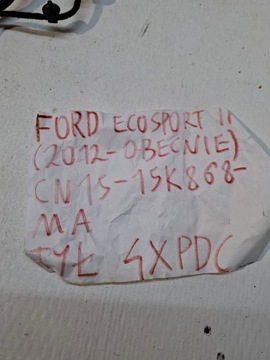 FORD ECOSPORT II
(2012-OBECNIE)
CN15-15K868-
MA
TYŁ 4XPDC